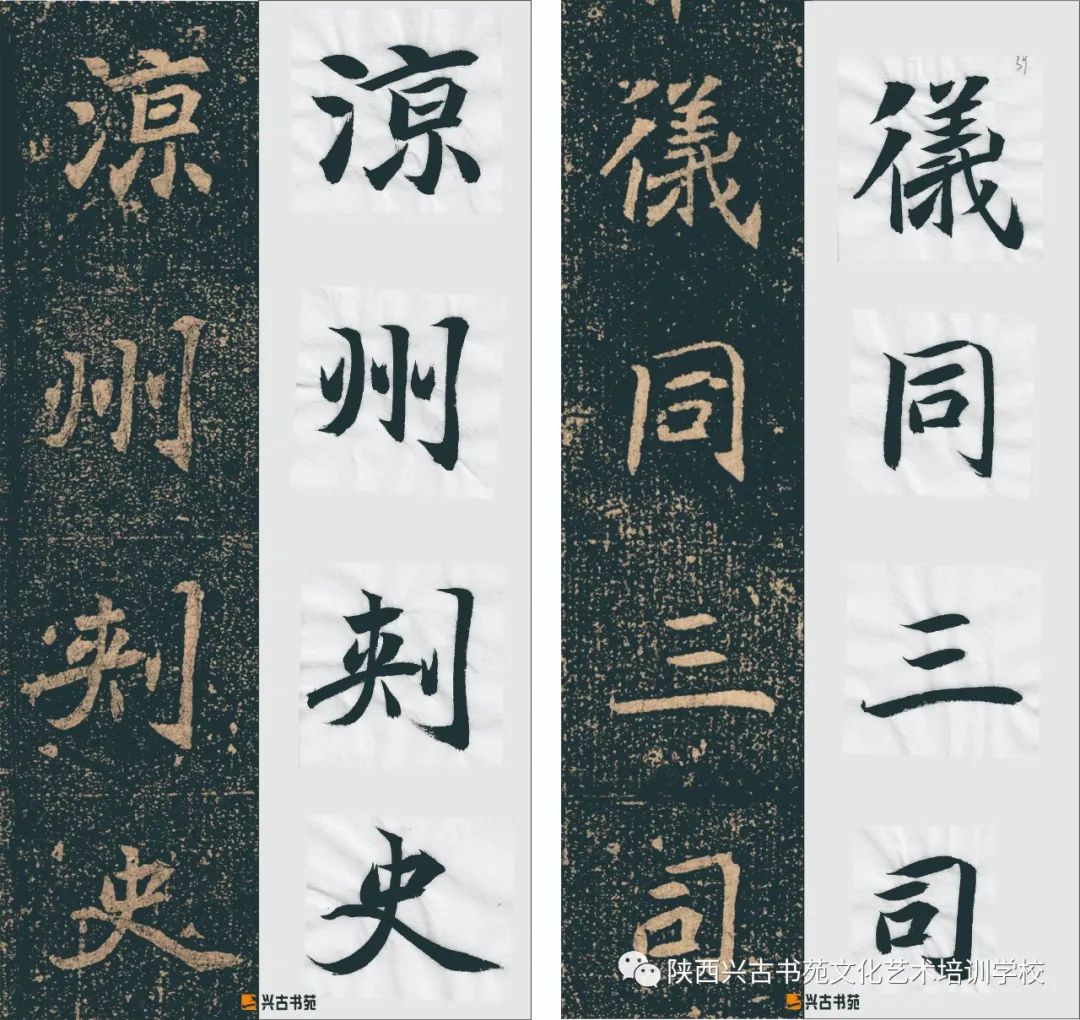 凉州刺史
凉州刺史
儀同三司
儀同三司
39
兴古书苑
兴古书苑
陕西兴古书苑文化艺术培训学校